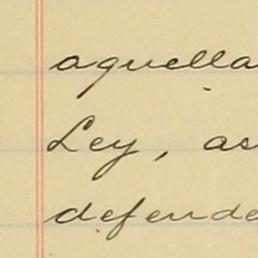 aquella
Ley, as
defende